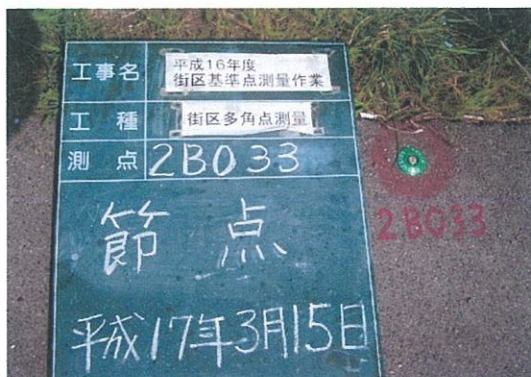 工事名
平成16年度
街区基準点測量作業
工種
街区多角点測量
測点
2B033
節点
平成17年3月15日
2B033